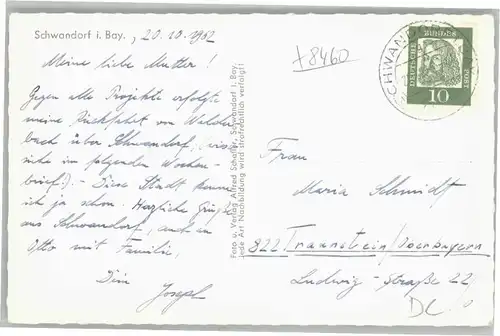 Schwandorf i. Bay., 20.10.1962
Meine liebe Mutter!
Gegen alle Projekte erfolgte
meine Rückfahrt von Walder-
bach über Schwandorf,
im folgenden Wochen-
brief). - Diese Stadt kenne
ich ja schon. Herzliche Grüße
aus Schwandorf, auch an
Otto mit Familie,
Dein
Josef
Foto u. Verlag Alfred Schäffer, Schwandorf i. Bay.
jede Art Nachbildung wird strafrechtlich verfolgt!
+8460
SCHWANDORF
DEUTSCHE BUNDESPOST
10
Frau
Maria Schmidt
822 Traunstein/Oberbayern
Ludwig-Straße 22
DC